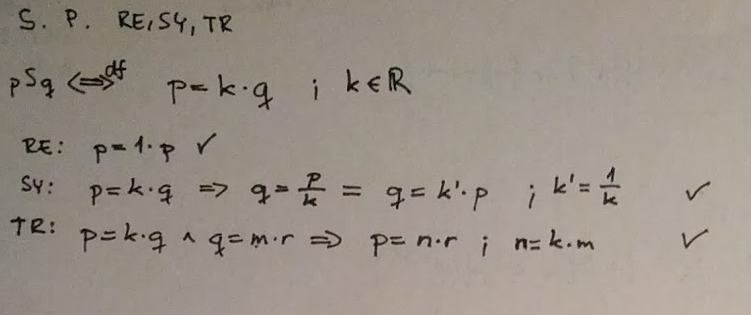 S. P. RE, SY, TR
pSq <=>df p = k·q ; k ∈ ℝ
RE: p = 1·p ✓
SY: p = k·q => q = p/k = q = k'·p ; k' = 1/k ✓
TR: p = k·q ∧ q = m·r => p = n·r ; n = k·m ✓